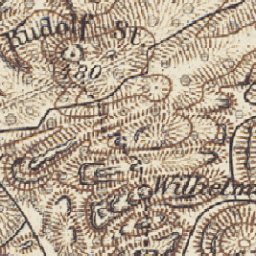 Rudolf St.
480
Wilhelm